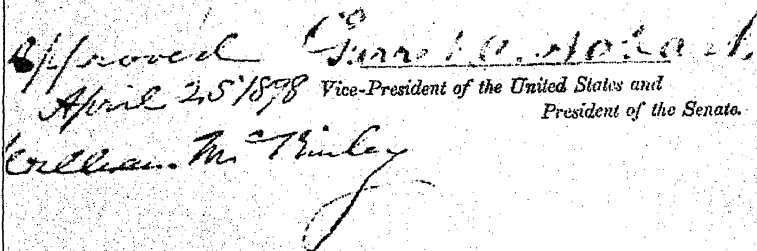 Approved Garret A. Hobart.
April 25 1898 Vice-President of the United States and
President of the Senate.
William McKinley